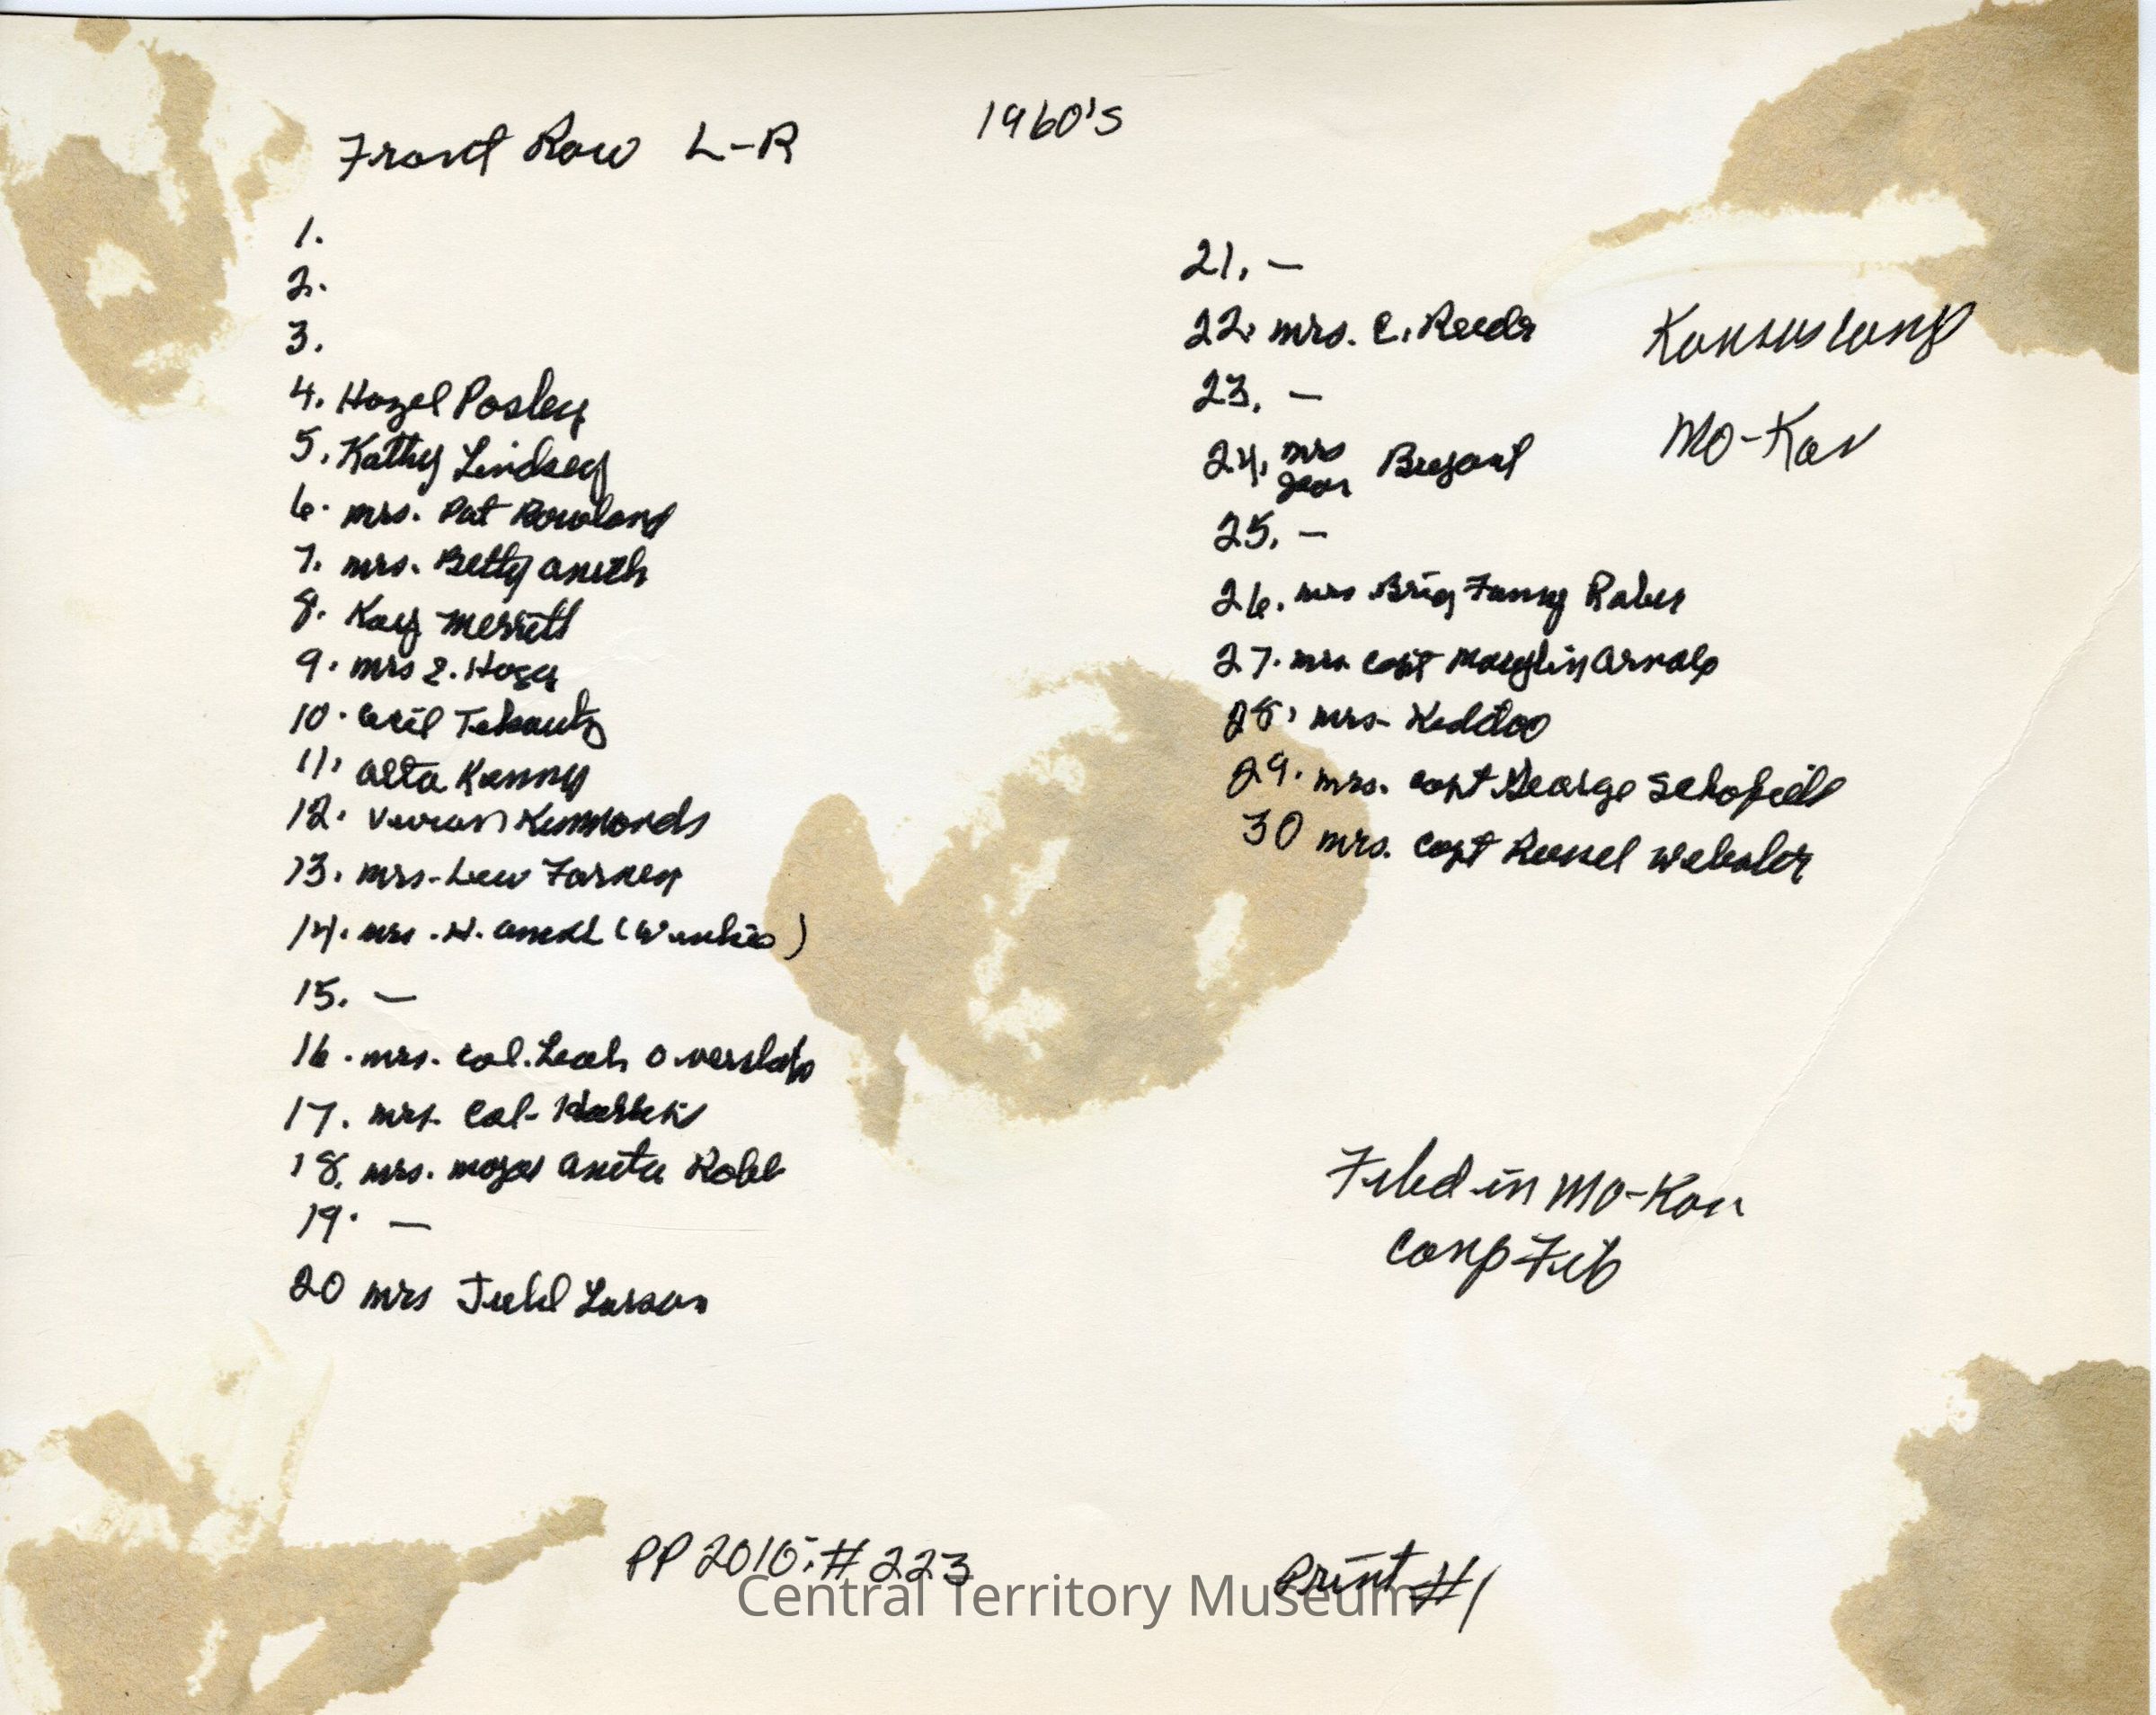 Front Row L-R
1960's
1.
2.
3.
4. Hazel Posley
5. Kathy Lindsey
6. mrs. Pat Rowland
7. mrs. Betty
8. Kay Merrett
9. mrs E. Hogg
10.
11. Alta Kenny
12. Vivian Kimmonds
13. mrs. Lew Forney
14. mrs. H.
15. —
16. mrs. Col. Leah Overstake
17. mrs. Col-
18. mrs. major Anita Robb
19. —
20 mrs Juhl Larson
21. —
22. mrs. C. Reeds
23. —
24. mrs Jean Bryant
25. —
26. mrs Brig Fanny Raber
27. mrs Capt Arnold
28. mrs. Keddoo
29. mrs. Capt George Schofield
30 mrs. Capt Russel Webster
Kansas Camp
Mo-Kan
Filed in Mo-Kan
Camp
PP 2010: # 223
Print #1
Central Territory Museum